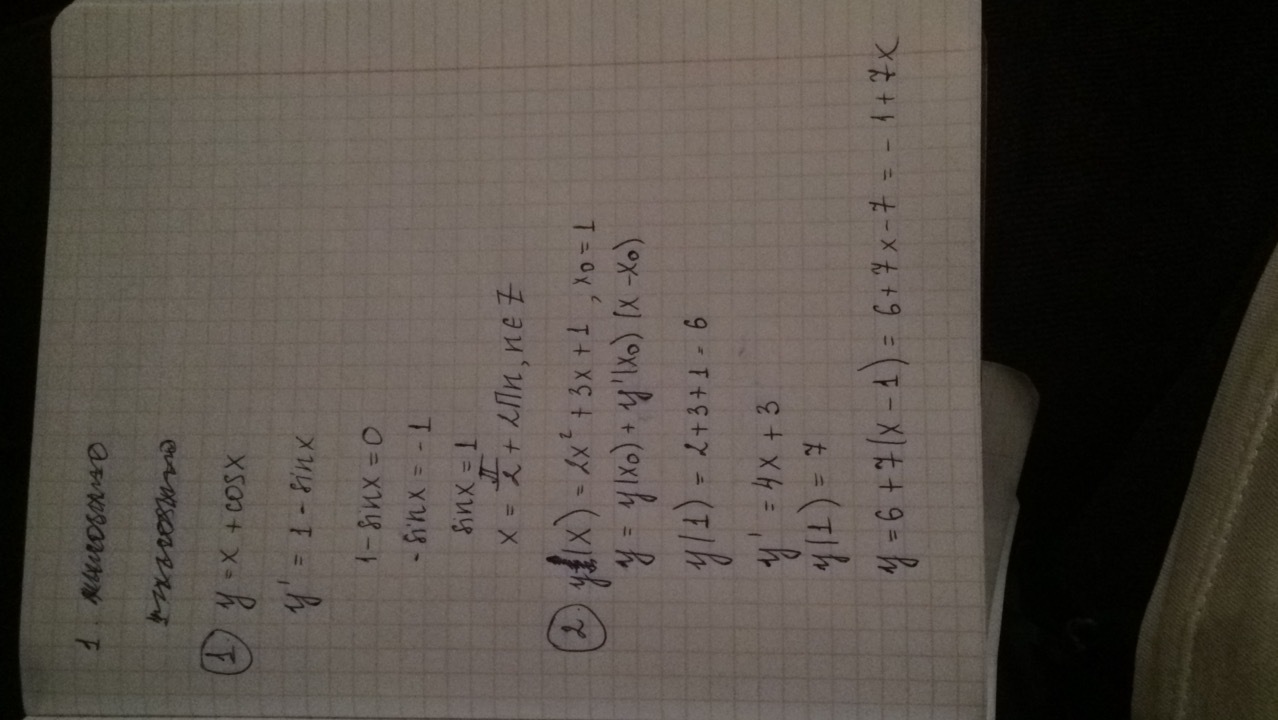 1.
1. y = x + cosx
y' = 1 - sinx
1 - sinx = 0
- sinx = - 1
sinx = 1
x = π/2 + 2Πn, n ∈ Z
2. y(x) = 2x² + 3x + 1 , x₀ = 1
y = y(x₀) + y'(x₀) (x - x₀)
y(1) = 2+3+1 = 6
y' = 4x + 3
y(1) = 7
y = 6 + 7(x - 1) = 6 + 7x - 7 = - 1 + 7x